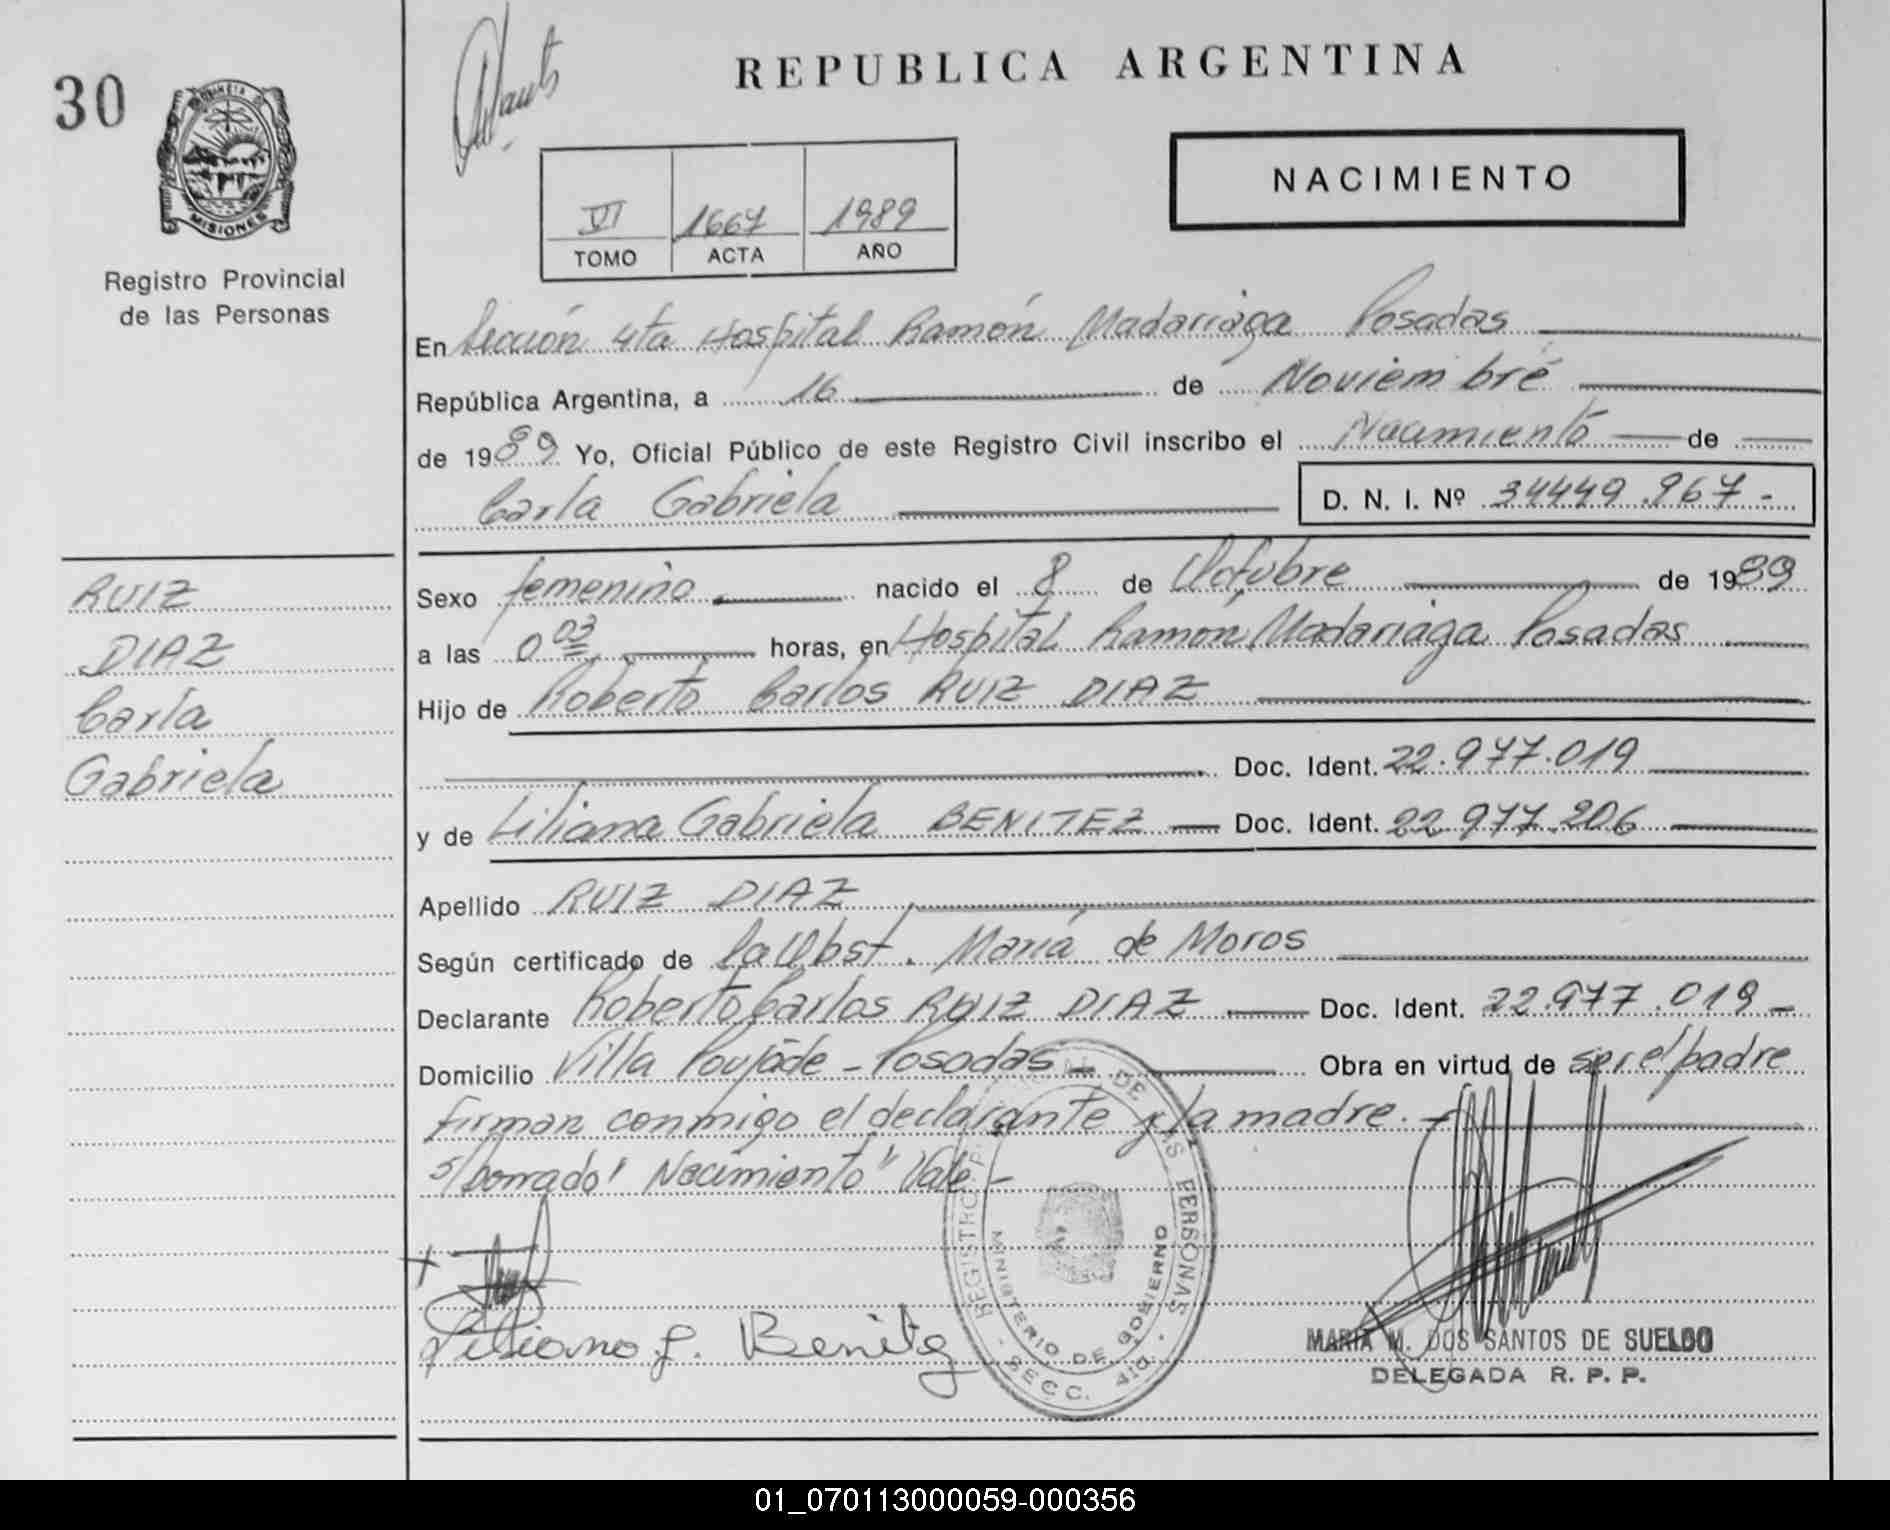 REPUBLICA ARGENTINA
30
NACIMIENTO
MISIONES
VI 1667 1989
TOMO ACTA AÑO
Registro Provincial
de las Personas
En Sección 4ta Hospital Ramón Madariaga Posadas
República Argentina, a 16 de Noviembre
de 1989 Yo, Oficial Público de este Registro Civil inscribo el Nacimiento de
Carla Gabriela D. N. I. Nº 34449.967-
RUIZ
DIAZ
Carla
Gabriela
Sexo femenino nacido el 8 de Octubre de 1989
a las 0 03 horas, en Hospital Ramón Madariaga Posadas
Hijo de Roberto Carlos RUIZ DIAZ
Doc. Ident. 22.977.019
y de Liliana Gabriela BENITEZ Doc. Ident. 22.977.206
Apellido RUIZ DIAZ
Según certificado de la Obst. María de Moros
Declarante Roberto Carlos RUIZ DIAZ Doc. Ident. 22.977.019-
Domicilio Villa Poujade - Posadas - Obra en virtud de ser el padre
Firman conmigo el declarante y la madre.-
s/borrado "Nacimiento" Vale-
Liliana G. Benitez
REGISTRO DE LAS PERSONAS
MINISTERIO DE GOBIERNO
- SECC. 4ta. -
MARIA M. DOS SANTOS DE SUELDO
DELEGADA R. P. P.
01_070113000059-000356